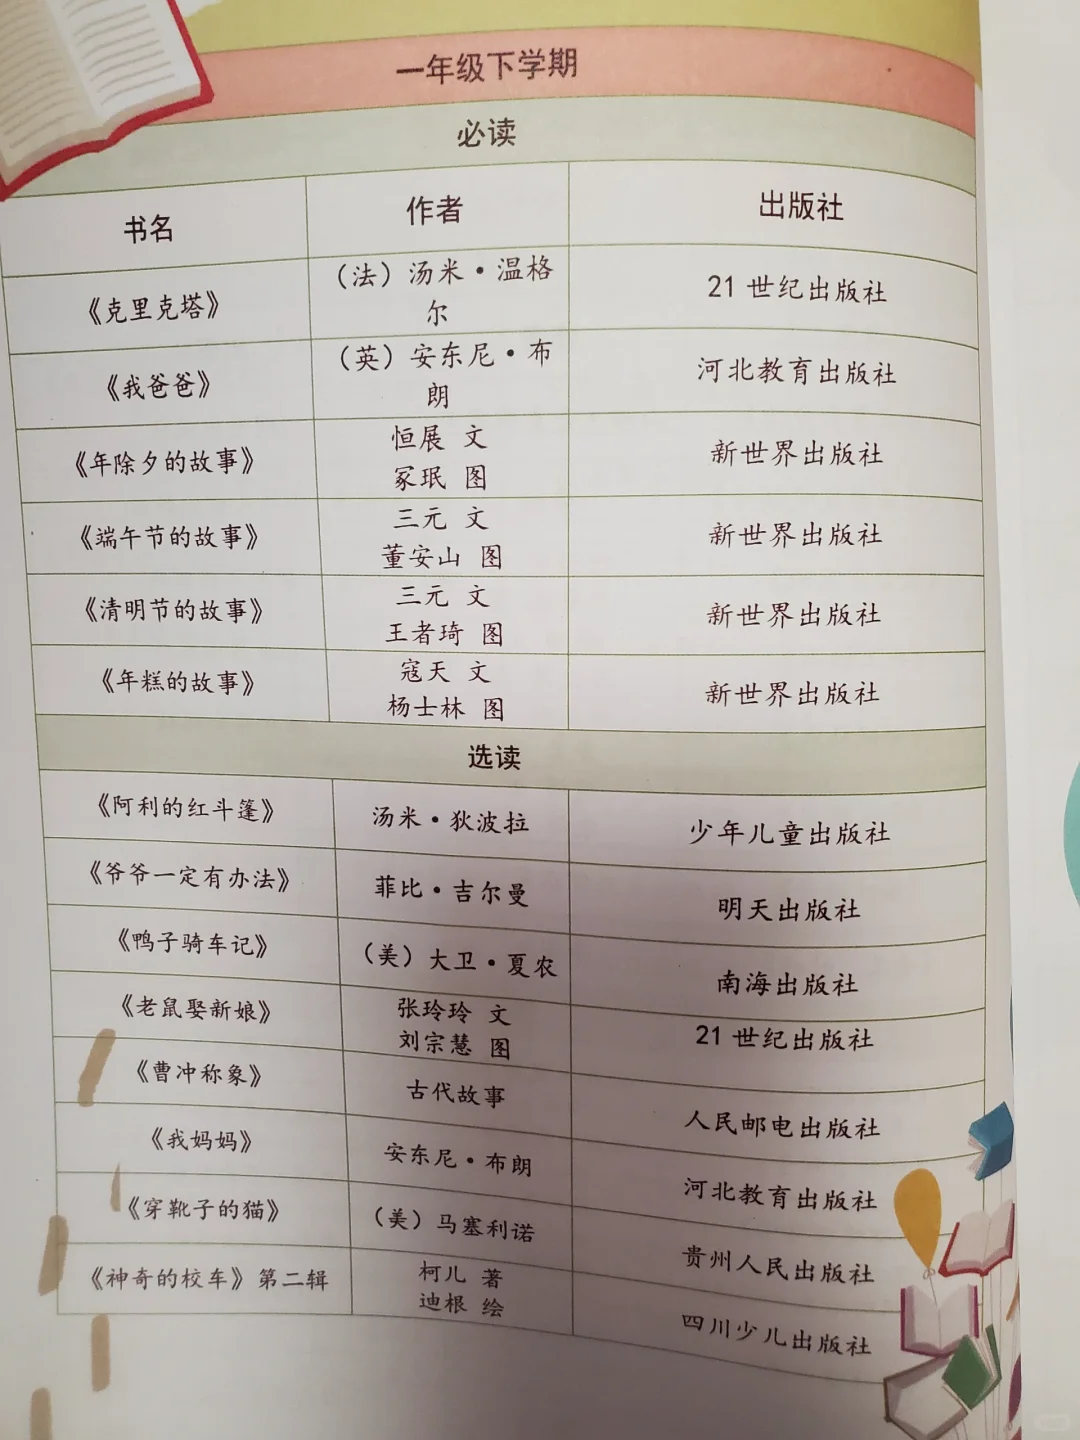 一年级下学期
必读
书名 作者 出版社
《克里克塔》 (法)汤米·温格尔 21世纪出版社
《我爸爸》 (英)安东尼·布朗 河北教育出版社
《年除夕的故事》 恒展 文 冢珉 图 新世界出版社
《端午节的故事》 三元 文 董安山 图 新世界出版社
《清明节的故事》 三元 文 王者琦 图 新世界出版社
《年糕的故事》 寇天 文 杨士林 图 新世界出版社
选读
《阿利的红斗篷》 汤米·狄波拉 少年儿童出版社
《爷爷一定有办法》 菲比·吉尔曼 明天出版社
《鸭子骑车记》 (美)大卫·夏农 南海出版社
《老鼠娶新娘》 张玲玲 文 刘宗慧 图 21世纪出版社
《曹冲称象》 古代故事 人民邮电出版社
《我妈妈》 安东尼·布朗 河北教育出版社
《穿靴子的猫》 (美)马塞利诺 贵州人民出版社
《神奇的校车》第二辑 柯儿 著 迪根 绘 四川少儿出版社